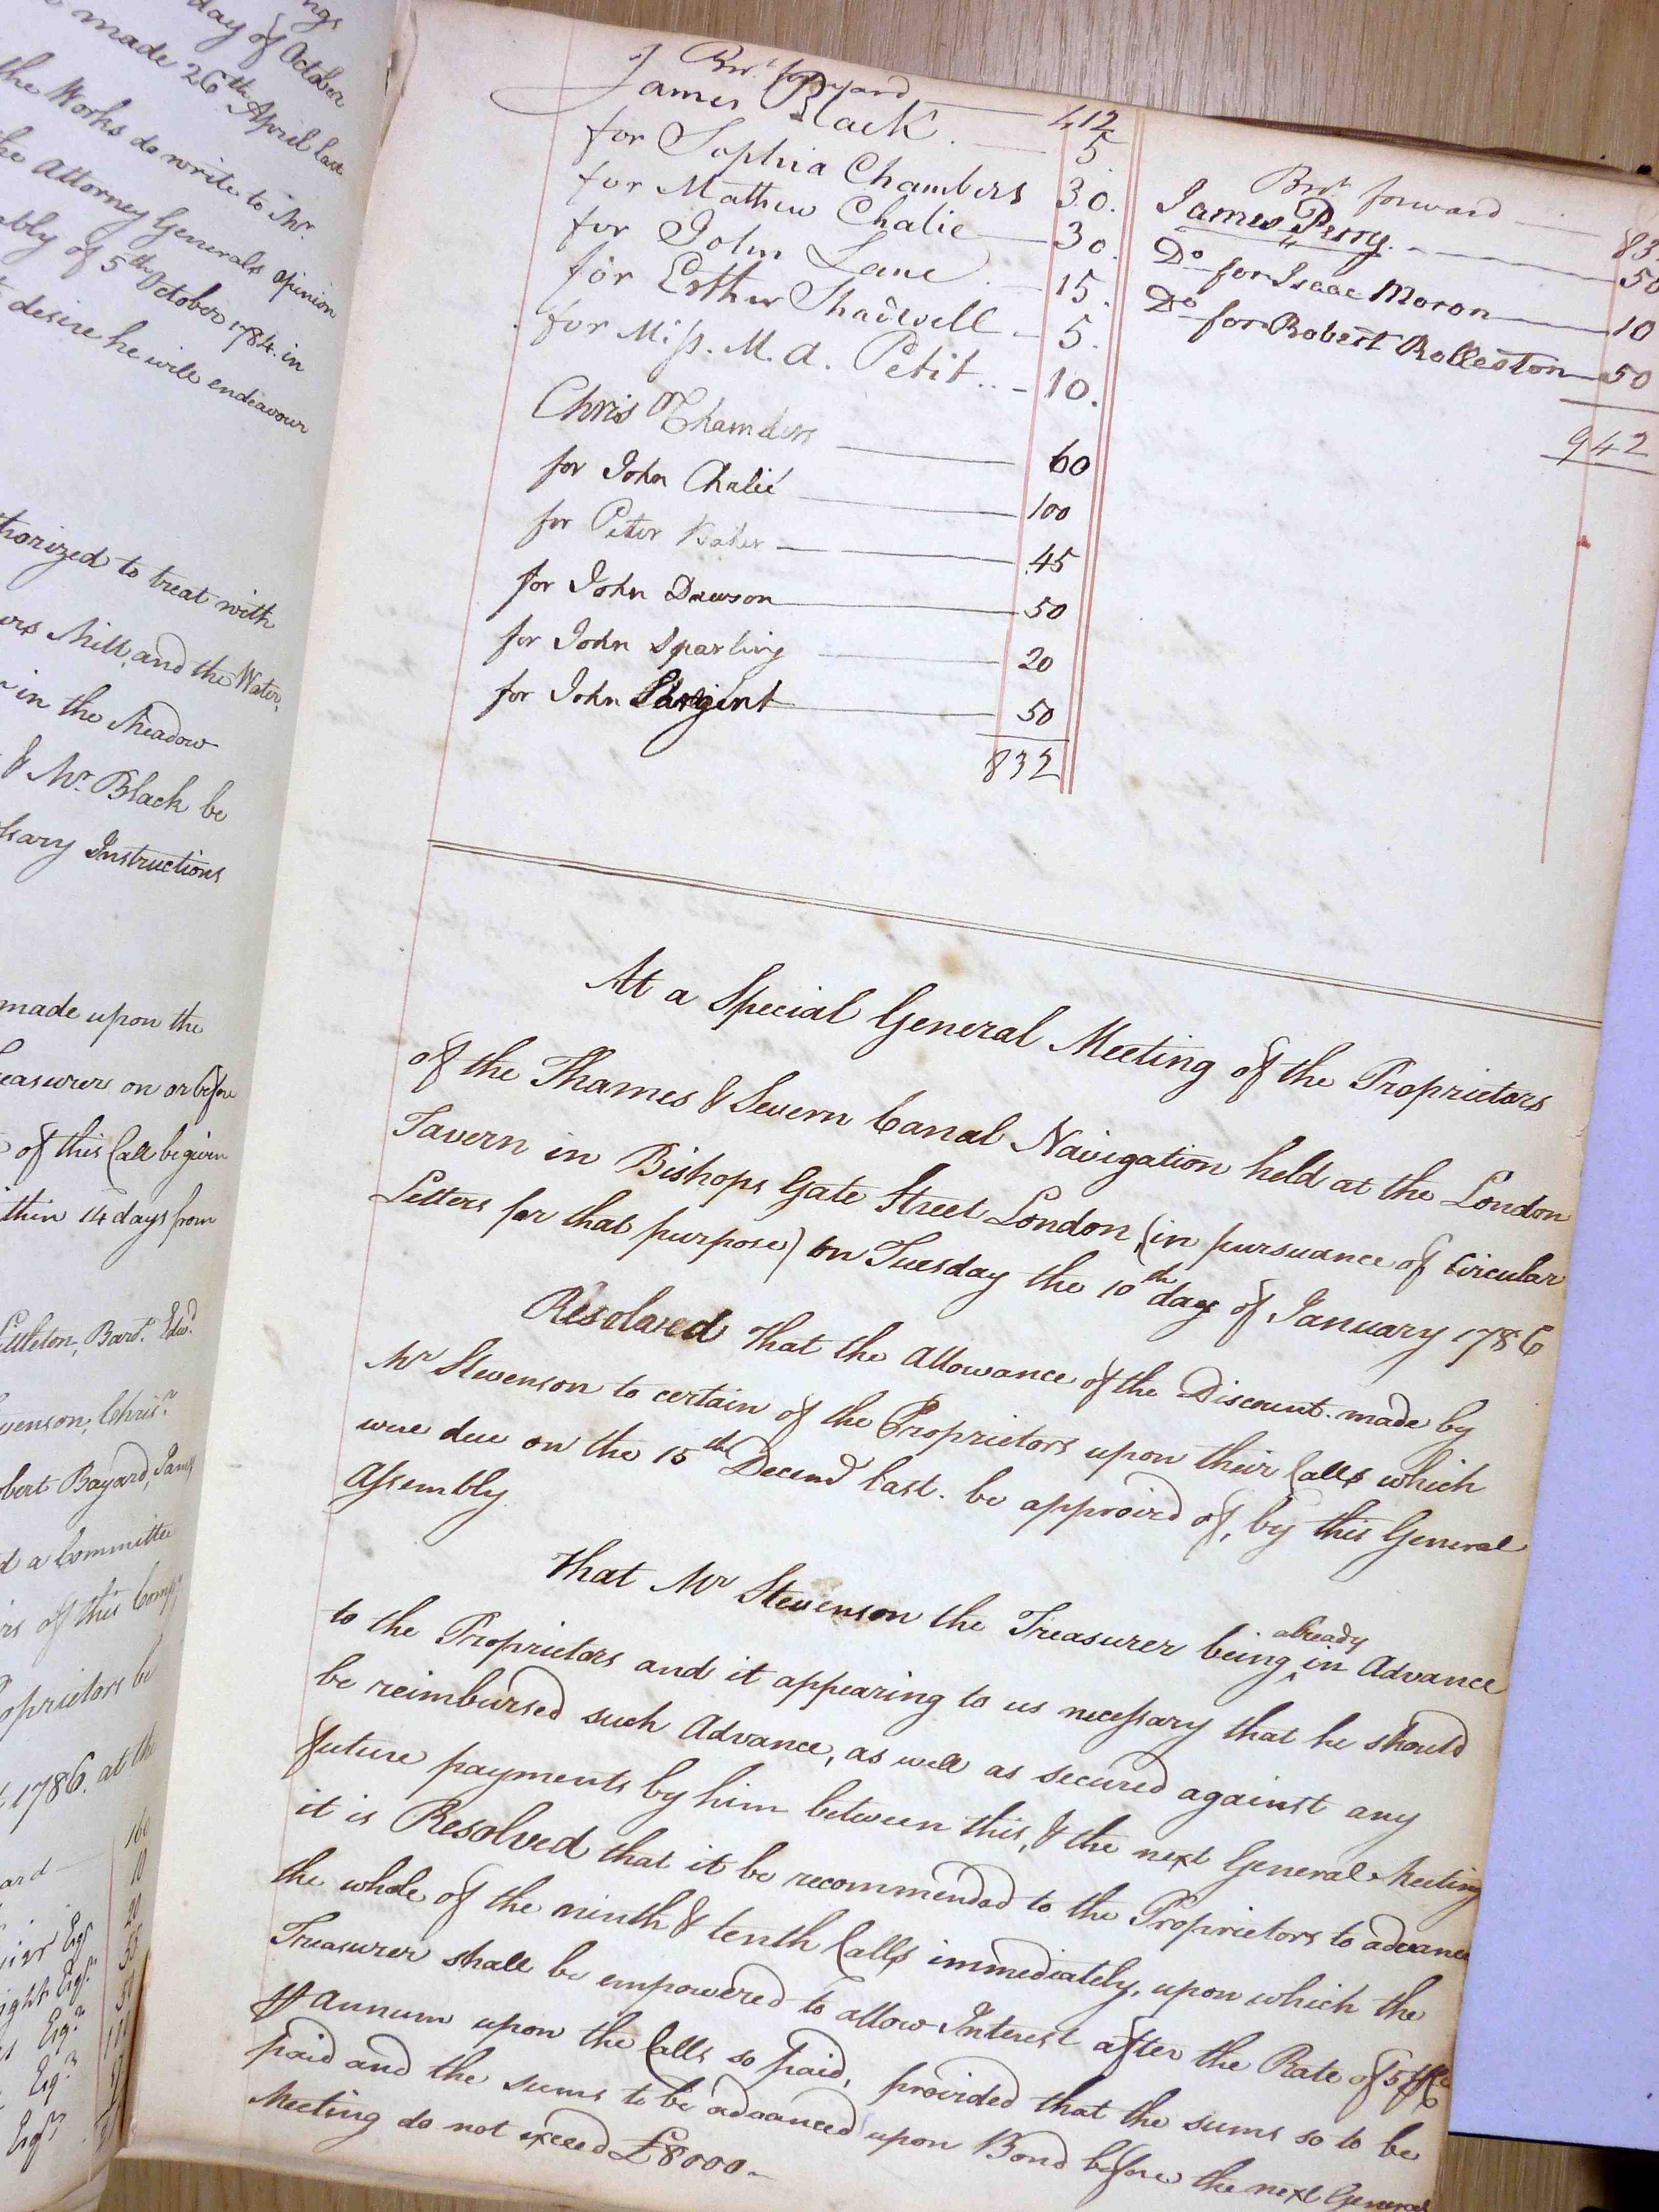 ngs
day of October
made 26th April last
the Works do write to Mr.
the Attorney Generals opinion
mbly of 5th October 1784. in
desire he will endeavour
thorized to treat with
ers Mill, and the Water,
in the Meadow
& Mr. Black be
ssary Instructions
made upon the
reasurer on or before
of this Call be given
ithin 14 days from
Littleton, Bart. Edwd.
venson, Chrisr.
obert Bayard, James
d a Committee
rs of this Compy.
oprietors be
1786. at the
ard
Esqr.
ight Esqr.
Esqr.
Esqr.
Esqr.
Brot. forward 412
James Black 5
for Sophia Chambers 30.
for Mathew Chalie 30.
for John Lane 15.
for Esther Shadwell 5.
for Miss. M. A. Petit 10.
Chrisr Chambers 60
for John Chalié 100
for Peter Baker 45
for John Dawson 50
for John Sparling 20
for John Sargent 50
832
Brot. forward 83
James Perry. 50
Do for Isaac Moron 10
Do for Robert Rolleston 50
942
At a Special General Meeting of the Proprietors
of the Thames & Severn Canal Navigation held at the London
Tavern in Bishops Gate Street London, (in pursuance of Circular
Letters for that purpose) on Tuesday the 10th day of January 1786
Resolved That the Allowance of the Discount made by
Mr Stevenson to certain of the Proprietors upon their Calls which
were due on the 15th Decemr last. be approved of, by this General
Assembly.
That Mr Stevenson the Treasurer being already in Advance
to the Proprietors and it appearing to us necessary that he should
be reimbursed such Advance, as well as secured against any
future payments by him between this, & the next General Meeting
it is Resolved that it be recommended to the Proprietors to advance
the whole of the ninth & tenth Calls immediately, upon which the
Treasurer shall be empowered to allow Interest after the Rate of 5 ₱ Ct
₱ Annum upon the Calls so paid, provided that the sums so to be
paid and the sums to be advanced upon Bond before the next General
Meeting do not exceed £8000.-